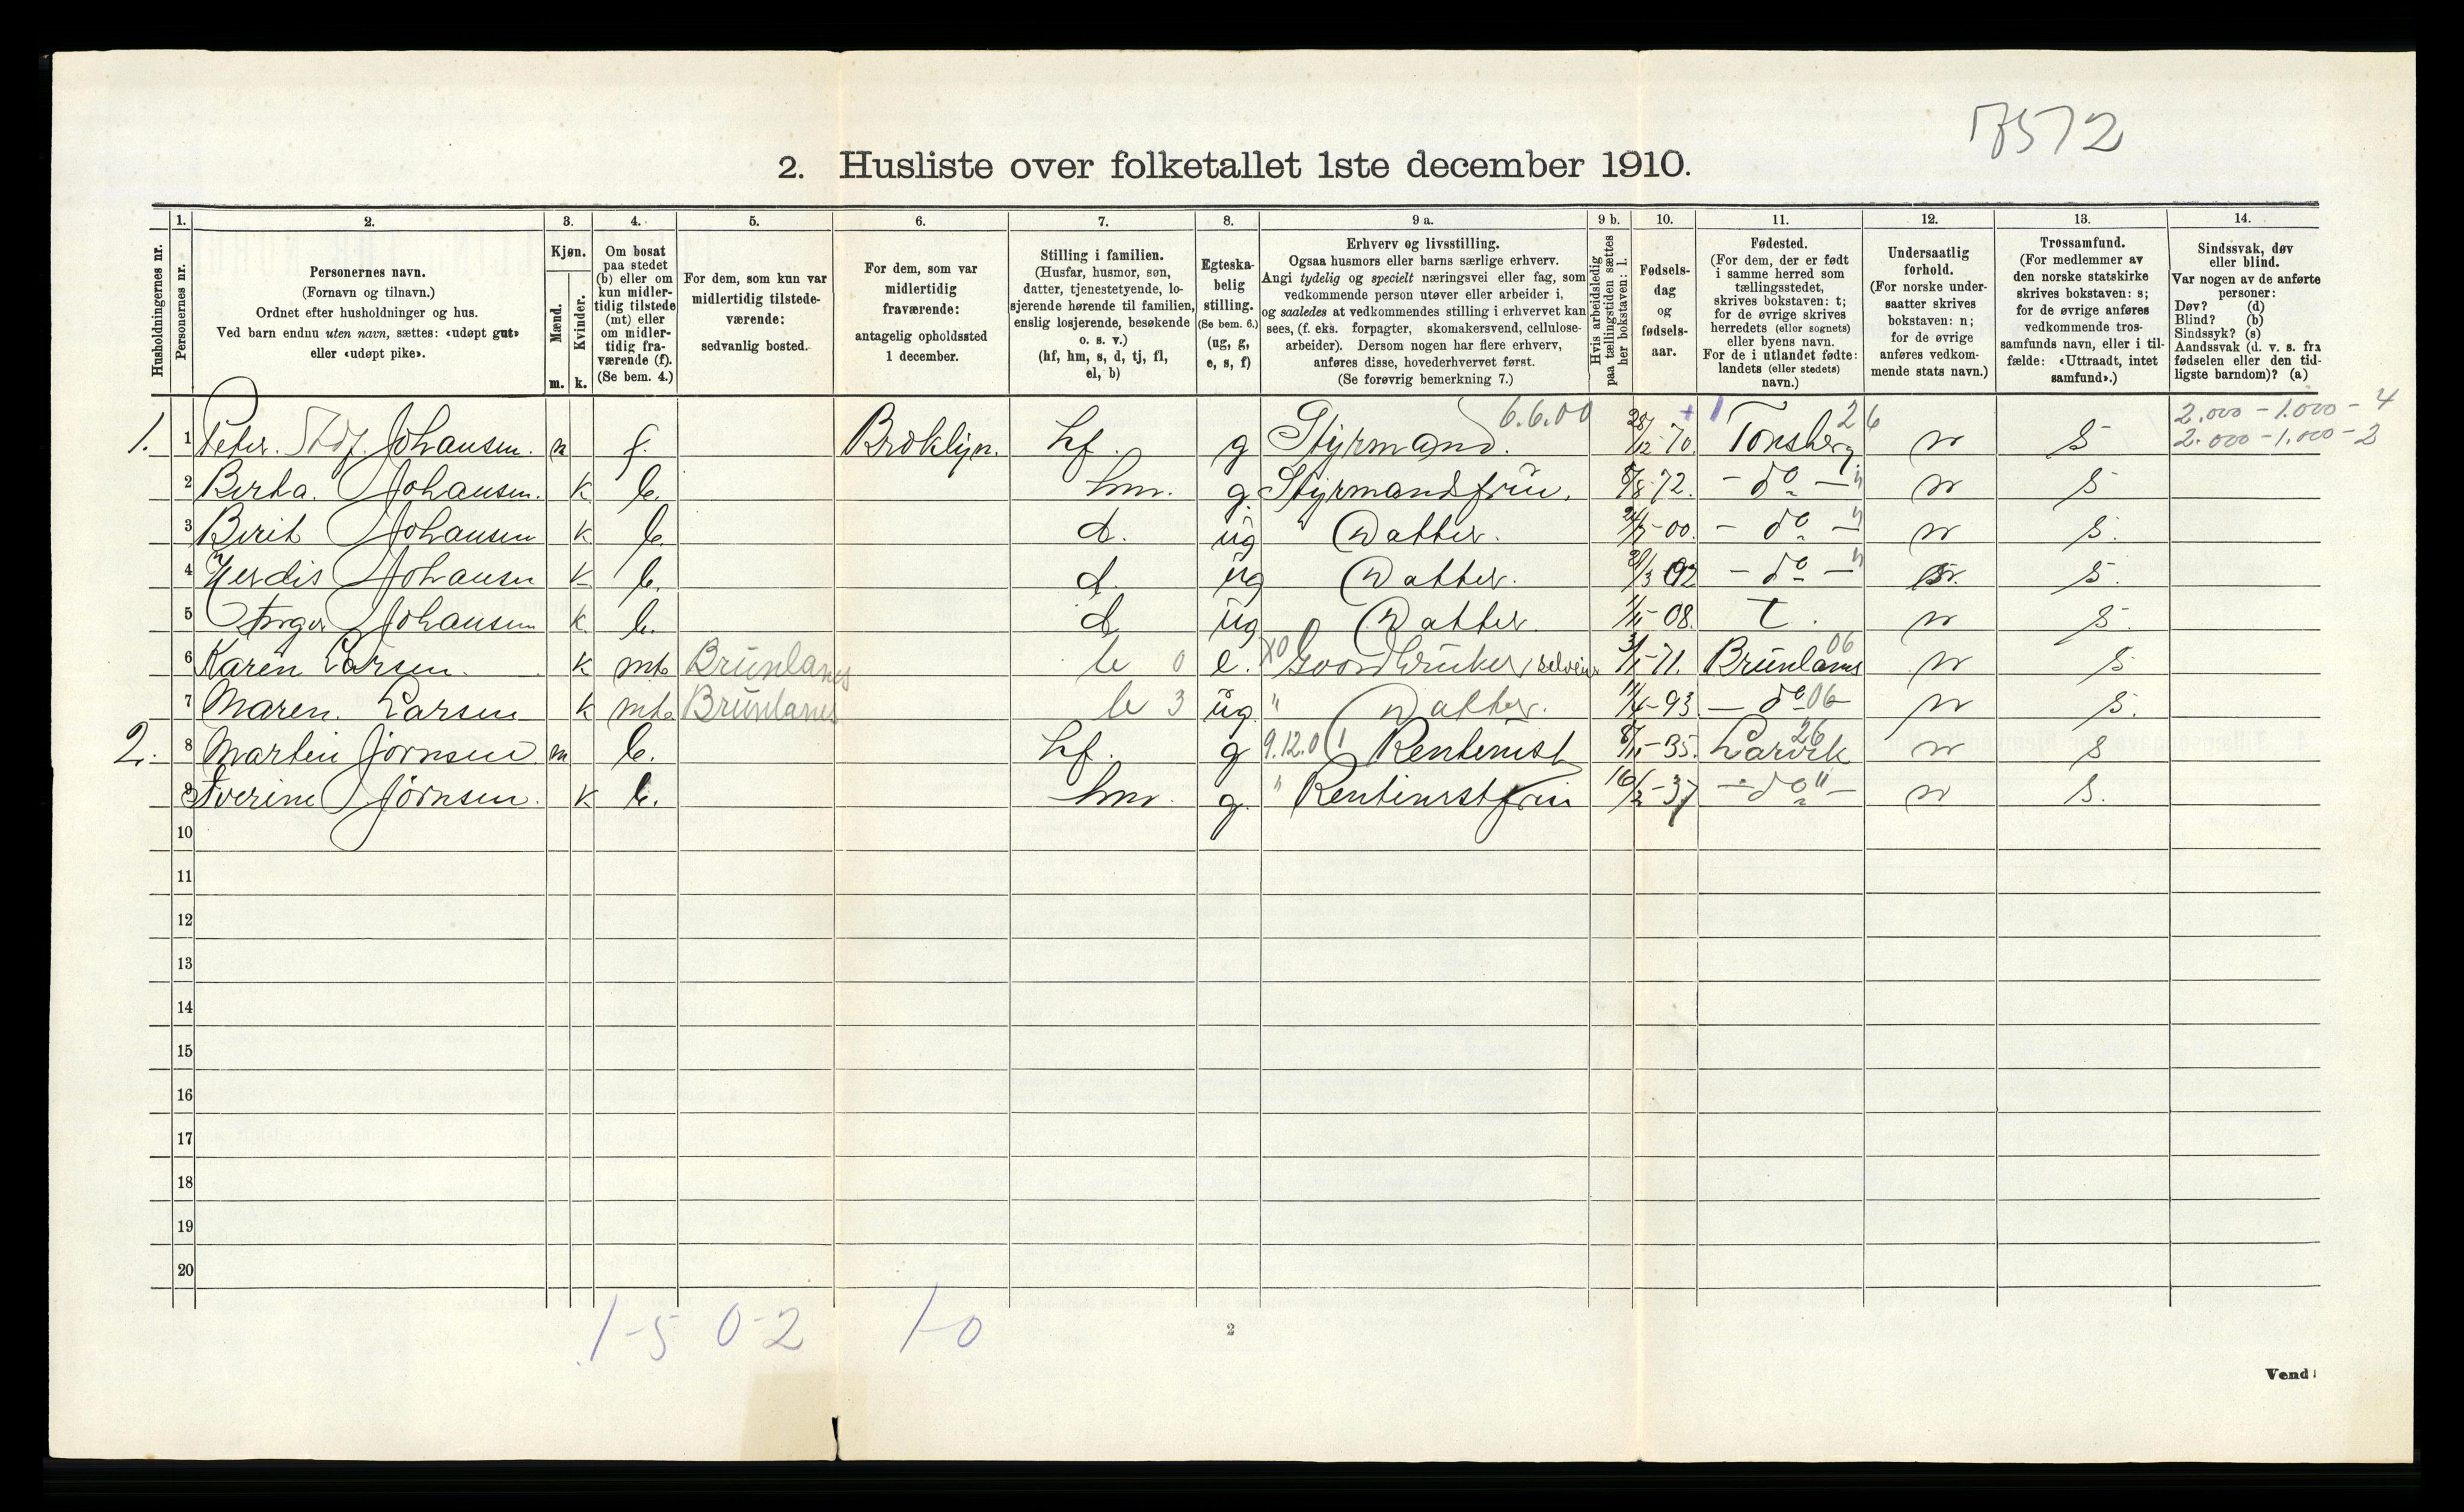 7572
2. Husliste over folketallet 1ste december 1910.
1. 2. 3. 4. 5. 6. 7. 8. 9 a. 9 b. 10. 11. 12. 13. 14.
Husholdningernes nr.
Personernes nr.
Personernes navn.
(Fornavn og tilnavn.)
Ordnet efter husholdninger og hus.
Ved barn endnu uten navn, sættes: «udøpt gut»
eller «udøpt pike».
Kjøn.
Mænd.
Kvinder.
m. k.
Om bosat
paa stedet
(b) eller om
kun midler-
tidig tilstede
(mt) eller
om midler-
tidig fra-
værende (f).
(Se bem. 4.)
For dem, som kun var
midlertidig tilstede-
værende:
sedvanlig bosted.
For dem, som var
midlertidig
fraværende:
antagelig opholdssted
1 december.
Stilling i familien.
(Husfar, husmor, søn,
datter, tjenestetyende, lo-
sjerende hørende til familien,
enslig losjerende, besøkende
o. s. v.)
(hf, hm, s, d, tj, fl,
el, b)
Egteska-
belig
stilling.
(Se bem. 6.)
(ug, g,
e, s, f)
Erhverv og livsstilling.
Ogsaa husmors eller barns særlige erhverv.
Angi tydelig og specielt næringsvei eller fag, som
vedkommende person utøver eller arbeider i,
og saaledes at vedkommendes stilling i erhvervet kan
sees, (f. eks. forpagter, skomakersvend, cellulose-
arbeider). Dersom nogen har flere erhverv,
anføres disse, hovederhvervet først.
(Se forøvrig bemerkning 7.)
Hvis arbeidsledig
paa tællingstiden sættes
her bokstaven: l.
Fødsels-
dag
og
fødsels-
aar.
Fødested.
(For dem, der er født
i samme herred som
tællingsstedet,
skrives bokstaven: t;
for de øvrige skrives
herredets (eller sognets)
eller byens navn.
For de i utlandet fødte:
landets (eller stedets)
navn.)
Undersaatlig
forhold.
(For norske under-
saatter skrives
bokstaven: n;
for de øvrige
anføres vedkom-
mende stats navn.)
Trossamfund.
(For medlemmer av
den norske statskirke
skrives bokstaven: s;
for de øvrige anføres
vedkommende tros-
samfunds navn, eller i til-
fælde: «Uttraadt, intet
samfund».)
Sindssvak, døv
eller blind.
Var nogen av de anførte
personer:
Døv? (d)
Blind? (b)
Sindssyk? (s)
Aandssvak (d. v. s. fra
fødselen eller den tid-
ligste barndom)? (a)
6.6.00 26 2.000-1.000-4
1. 1 Peter Johansen. m f. Broklyn. hf. g Styrmand. 28/12-70. Tonsberg n s 2.000-1.000-2
2 Berta. Johansen. k b. hm. g. Styrmandsfrü. 8/8-72. - do - n s
3 Birit Johansen k b. d. üg Datter. -00. - do - n s.
4 Herdis Johansen k b. d. üg Datter. /3 02 - do - n. s.
5 Johansen k. b. d üg Datter. -08. t. n s.
6 Karen Larsen. k mt. Brünlanes b 0 e. -71. Brünlanes 06 n s
7 Maren. Larsen k mt. Brünlanes b 3 üg. " Datter. -93 - do 06 - n s.
2. 8 Martin Jørnsen. m b. hf. g 9.12.01 Rentenist -35. Larvik 26 n s
9 Jørnsen. k b. hm. g. " Rentenistfrü 16/2-37 - do " - n s.
10
11
12
13
14
15
16
17
18
19
20
1-5 0-2 1-0
2
Vend!